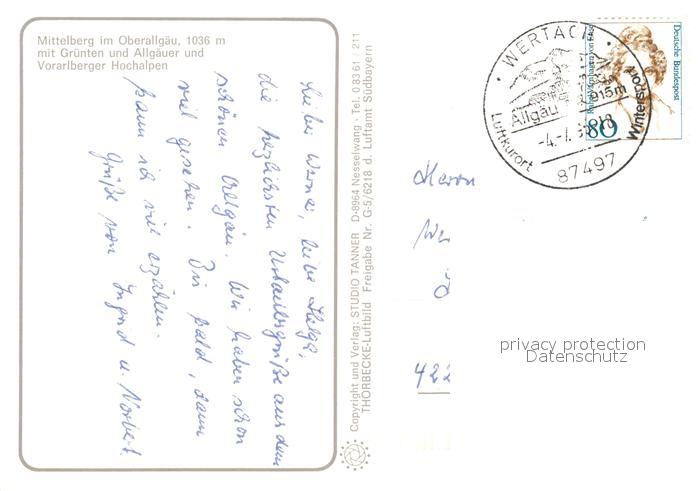 Mittelberg im Oberallgäu, 1036 m
mit Grünten und Allgäuer und
Vorarlberger Hochalpen
Lieber Werner, liebe Helga,
die herzlichsten Urlaubsgrüße aus dem
schönen Allgäu. Wir haben schon
viel gesehen. Bis bald, dann
kann ich viel erzählen.
Grüße von Ingrid u. Norbert
Copyright und Verlag: STUDIO TANNER D-8964 Nesselwang · Tel. 0 83 61 / 211
THORBECKE-Luftbild Freigabe Nr. G-5/6218 d. Luftamt Südbayern
WERTACH
Allgäu
915m
Luftkurort
Wintersport
87497
Deutsche Bundespost
80
Herrn
We
422
privacy protection
Datenschutz